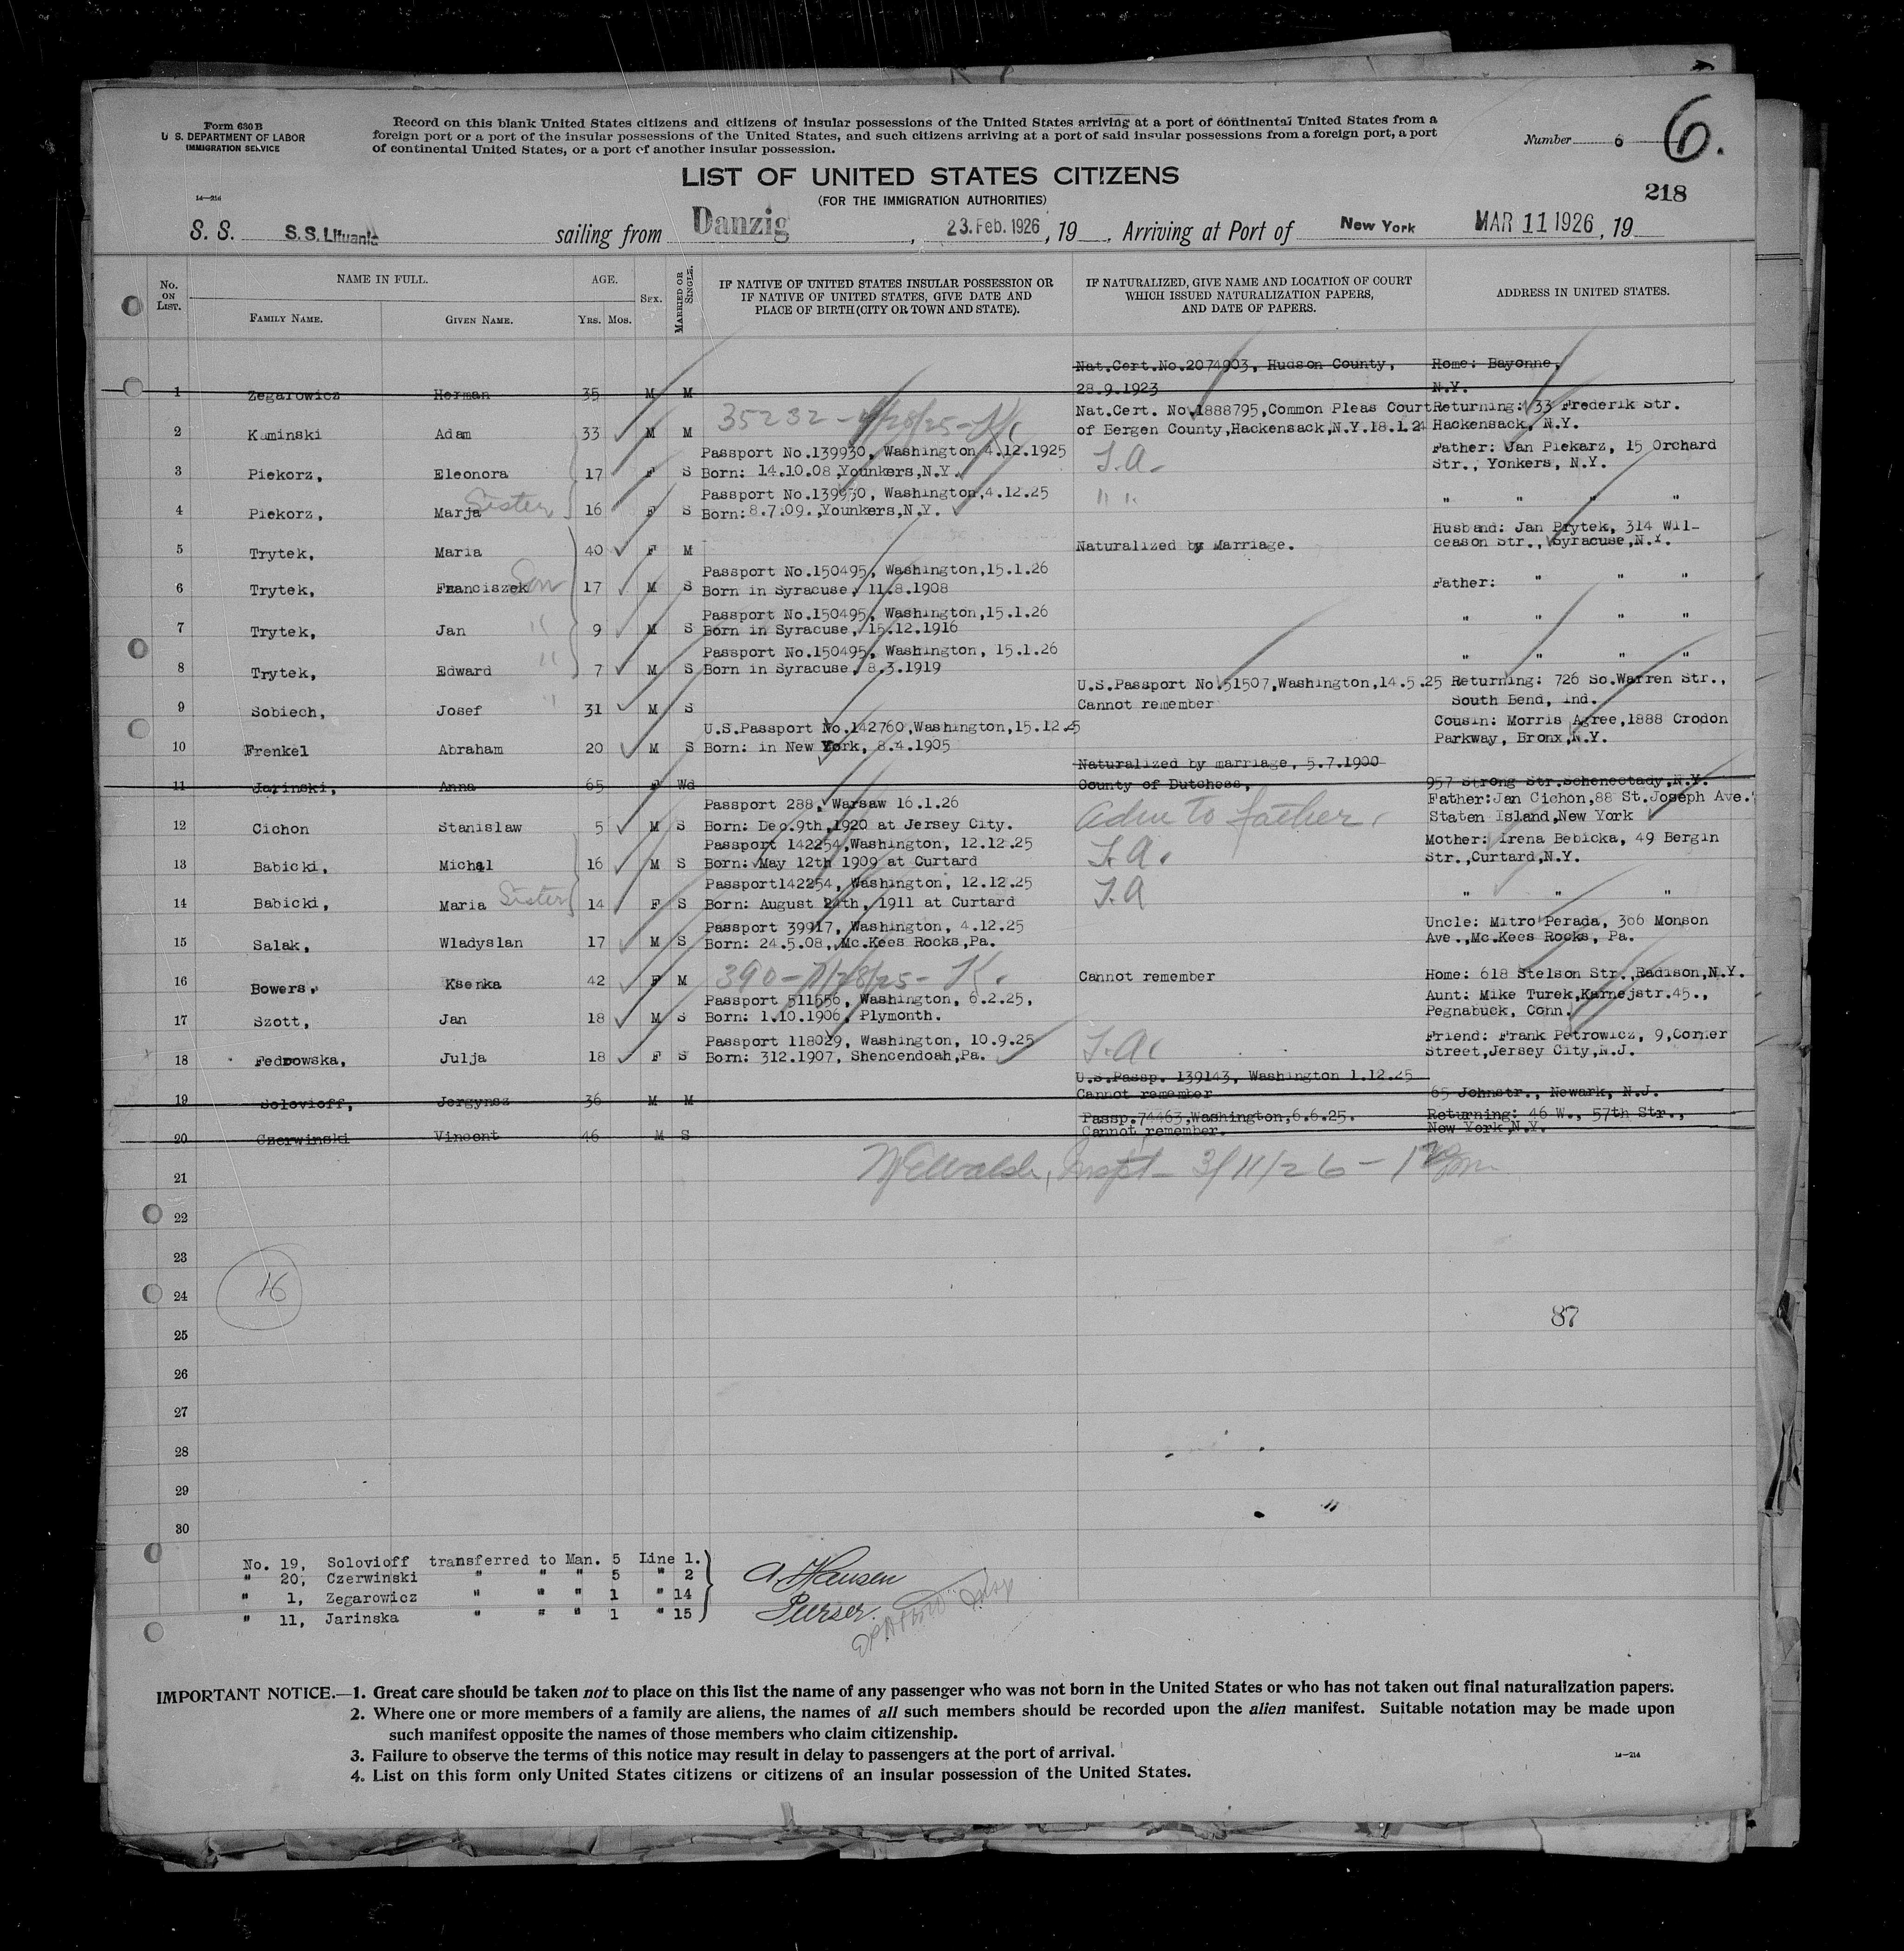 Form 630 B
U. S. DEPARTMENT OF LABOR
IMMIGRATION SERVICE
Record on this blank United States citizens and citizens of insular possessions of the United States arriving at a port of continental United States from a
foreign port or a port of the insular possessions of the United States, and such citizens arriving at a port of said insular possessions from a foreign port, a port
of continental United States, or a port of another insular possession.
Number 6
6.
LIST OF UNITED STATES CITIZENS
(FOR THE IMMIGRATION AUTHORITIES)
218
14—214
S. S. S.S. Lituania sailing from Danzig, 23. Feb. 1926, 19 , Arriving at Port of New York MAR 11 1926, 19
No. ON LIST.
NAME IN FULL.
FAMILY NAME. GIVEN NAME.
AGE.
YRS. MOS.
SEX.
MARRIED OR SINGLE.
IF NATIVE OF UNITED STATES INSULAR POSSESSION OR
IF NATIVE OF UNITED STATES, GIVE DATE AND
PLACE OF BIRTH (CITY OR TOWN AND STATE).
IF NATURALIZED, GIVE NAME AND LOCATION OF COURT
WHICH ISSUED NATURALIZATION PAPERS,
AND DATE OF PAPERS.
ADDRESS IN UNITED STATES.
Nat.Cert.No.2074903, Hudson County, Home: Bayonne,
1 Zegarowicz Herman 35 M M 28.9.1923 N.Y.
35232-4/28/25-K. Nat.Cert. No.1888795,Common Pleas Court Returning: 33 Frederik Str.
2 Kaminski Adam 33 M M of Bergen County,Hackensack,N.Y.18.1.24 Hackensack, N.Y.
Passport No.139930, Washington 4.12.1925 Father: Jan Piekarz, 15 Orchard
3 Piekorz, Eleonora 17 F S Born: 14.10.08,Younkers,N.Y. Str., Yonkers, N.Y.
Passport No.139930, Washington,4.12.25
4 Piekorz, Marja Sister 16 F S Born: 8.7.09.,Younkers,N.Y. " " " " " "
Husband: Jan Prytek, 314 Wil-
5 Trytek, Maria 40 F M Naturalized by Marriage. ceason Str., Syracuse,N.Y.
Passport No.150495, Washington,15.1.26
6 Trytek, Franciszek Son 17 M S Born in Syracuse, 11.8.1908 Father: " " "
Passport No.150495, Washington,15.1.26
7 Trytek, Jan " 9 M S Born in Syracuse, 15.12.1916 " " " "
Passport No.150495, Washington, 15.1.26
8 Trytek, Edward " 7 M S Born in Syracuse, 8.3.1919 " " " "
U.S.Passport No.51507,Washington,14.5.25 Returning: 726 So.Warren Str.,
9 Sobiech, Josef " 31 M S Cannot remember South Bend, Ind.
U.S.Passport No.142760,Washington,15.12.25 Cousin: Morris Agree,1888 Crodon
10 Frenkel Abraham 20 M S Born: in New York, 8.4.1905 Parkway, Bronx,N.Y.
Naturalized by marriage, 5.7.1900
11 Jarinski, Anna 65 F Wd County of Dutchess, 957 Strong Str.Schenectady,N.Y.
Passport 288, Warsaw 16.1.26 Father:Jan Cichon,88 St.Joseph Ave.
12 Cichon Stanislaw 5 M S Born: Dec.9th,1920 at Jersey City. Adm to father. Staten Island,New York
Passport 142254,Washington, 12.12.25 Mother: Irena Bebicka, 49 Bergin
13 Babicki, Michal 16 M S Born: May 12th 1909 at Curtard Str.,Curtard,N.Y.
Passport142254, Washington, 12.12.25
14 Babicki, Maria Sister 14 F S Born: August 24th, 1911 at Curtard " " "
Passport 39917, Washington, 4.12.25 Uncle: Mitro Perada, 306 Monson
15 Salak, Wladyslan 17 M S Born: 24.5.08, Mc.Kees Rocks,Pa. Ave.,Mc.Kees Rocks, Pa.
16 Bowers, Ksenka 42 F M 390-7/28/25-K. Cannot remember Home: 618 Stelson Str.,Radison,N.Y.
Passport 511656, Washington, 6.2.25, Aunt: Mike Turek,Karnejstr.45.,
17 Szott, Jan 18 M S Born: 1.10.1906, Plymonth. Pegnabuck, Conn.
Passport 118029, Washington, 10.9.25 Friend: Frank Petrowicz, 9,Corner
18 Fedrowska, Julja 18 F S Born: 312.1907, Shencendoah,Pa. Street,Jersey City,N.J.
U.S.Passp. 139143, Washington 1.12.25
19 Solovioff, Jergynsz 36 M M Cannot remember 65 Johnstr., Newark, N.J.
Passp.74463,Washington,6.6.25. Returning: 46 W., 57th Str.,
20 Czerwinski Vincent 46 M S Cannot remember. New York,N.Y.
21 Inspt- 3/11/26-
22
23
24 16
25 87
26
27
28
29
30
No. 19, Solovioff transferred to Man. 5 Line 1.
" 20, Czerwinski " " " 5 " 2
" 1, Zegarowicz " " " 1 " 14
" 11, Jarinska " " " 1 " 15
A. Hansen
Purser.
IMPORTANT NOTICE.—1. Great care should be taken not to place on this list the name of any passenger who was not born in the United States or who has not taken out final naturalization papers.
2. Where one or more members of a family are aliens, the names of all such members should be recorded upon the alien manifest. Suitable notation may be made upon
such manifest opposite the names of those members who claim citizenship.
3. Failure to observe the terms of this notice may result in delay to passengers at the port of arrival.
4. List on this form only United States citizens or citizens of an insular possession of the United States.
14—214